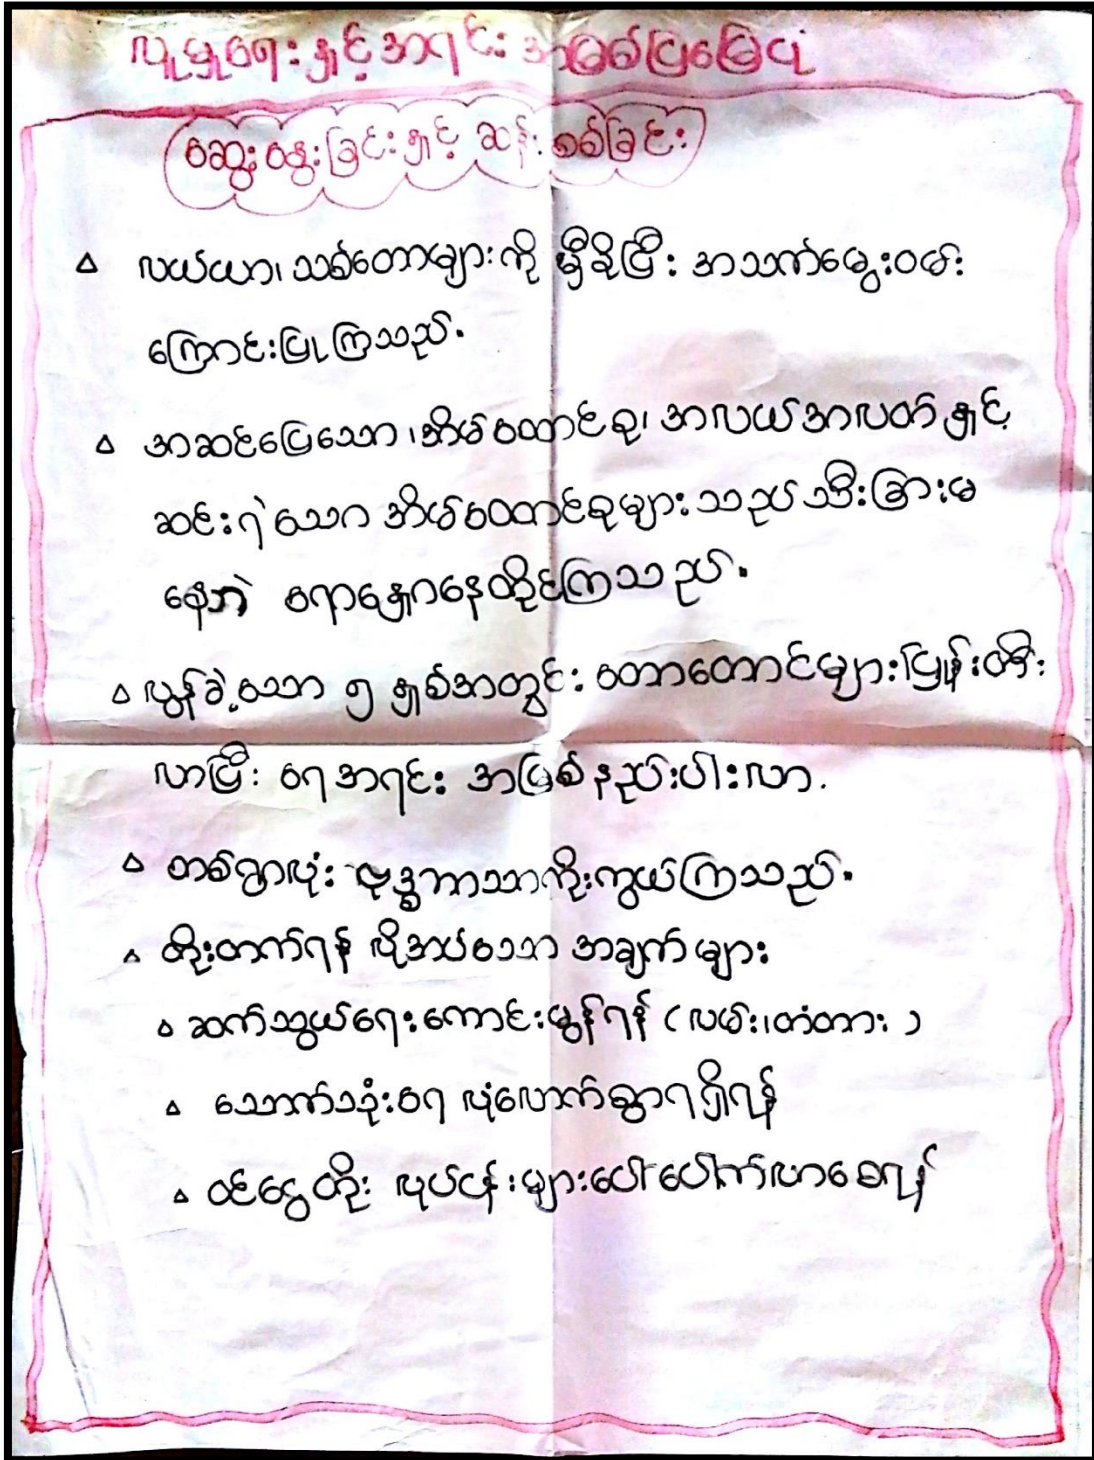 လူမှုရေးနှင့်အရင်းအမြစ်ပြမြေပုံ
ဆွေးနွေးခြင်းနှင့် ဆန်းစစ်ခြင်း
လယ်ယာ၊ သစ်တောများကို မှီခိုပြီး အသက်မွေးဝမ်း
ကြောင်းပြုကြသည်။
အဆင်ပြေသော၊ အိမ်ထောင်စု၊ အလယ်အလတ်နှင့်
ဆင်းရဲသော အိမ်ထောင်စုများသည် သီးခြားမ
နေဘဲ ရောနှောနေထိုင်ကြသည်။
လွန်ခဲ့သော ၅ နှစ်အတွင်း တောတောင်များပြုန်းတီး
လာပြီး ရေအရင်းအမြစ်နည်းပါးလာ.
တစ်ရွာလုံး ဗုဒ္ဓဘာသာကိုးကွယ်ကြသည်။
တိုးတက်ရန် လိုအပ်သော အချက်များ
ဆက်သွယ်ရေးကောင်းမွန်ရန် (လမ်း၊တံတား)
သောက်သုံးရေ လုံလောက်စွာရရှိရန်
ဝင်ငွေတိုး လုပ်ငန်းများပေါ်ပေါက်လာစေရန်